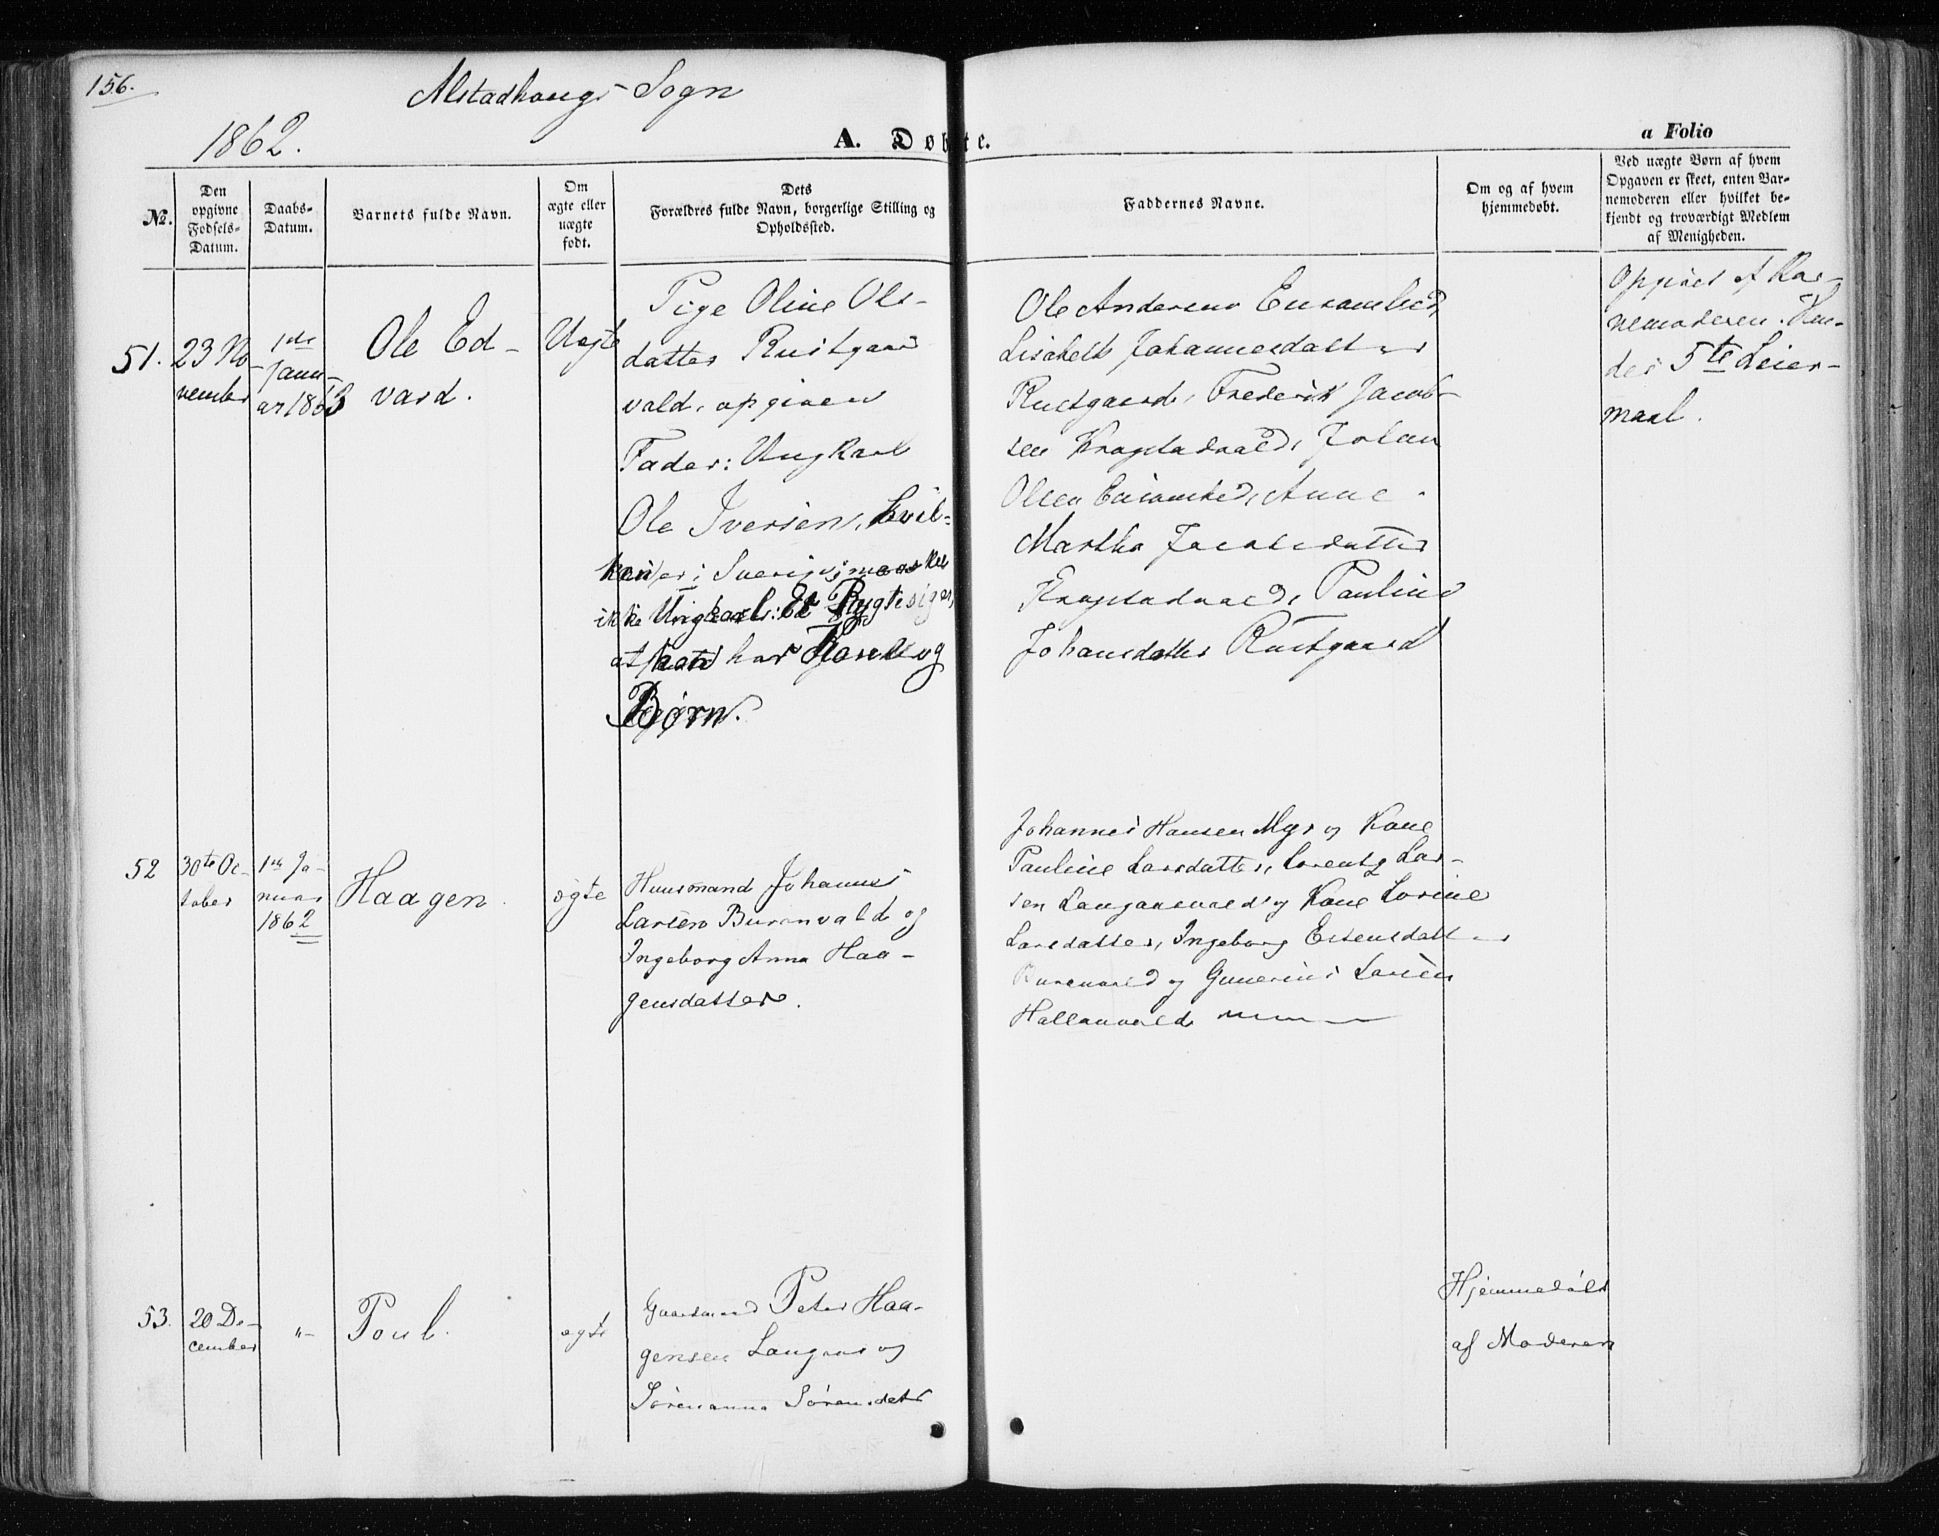 156.
Alstadhougs Sogn
1862.
A. Døbte.
a Folio
No.
Den
opgivne
Fødsels-
Datum.
Daabs-
Datum.
Barnets fulde Navn.
Om
ægte eller
uægte
født.
Dets
Forældres fulde Navn, borgerlige Stilling og
Opholdssted.
Faddernes Navne.
Om og af hvem
hjemmedøbt.
Ved uægte Børn af hvem
Opgaven er skeet, enten Bar-
nemoderen eller hvilket be-
kjendt og troværdigt Medlem
af Menigheden.
51.
23 No-
vember
1ste
Janu-
ar 1863
Ole Ed-
vard.
Uægte
Pige Oline Ols-
datter Rustgaard
vald, opgiven
Fader: Ungkarl
Ole Iversen, hvil-
ken er i Sverige, maaskee
ikke Ungkarl: Et Rygte siger,
at han har Kone og
Børn.
Ole Andersen
Lisabeth Johannesdatter
Rustgaard, Frederik Jacob-
sen Johan
Olsen Anne
Martha Jacobsdatter
Pauline
Johansdatter Rustgaard
Opgivet af Bar-
nemoderen. Hen-
des 5te Leier-
maal.
52
30te Oc-
tober
1ste Ja-
nuar
1862
Haagen
ægte
Huusmand Johannes
Larsen Buranvald og
Ingeborg Anna Haa-
gensdatter.
Johannes Hansen Myr og Kone
Pauline Larsdatter, Lorents Lar-
sen Langaasvald og Kone Lorine
Larsdatter, Ingeborg Estensdatter
Buranvald og Gunerius Larsen
Hallanvald
53.
20 De-
cember
"
Poul.
ægte
Gaardmand Peter Haa-
gensen Langaas og
Sørenanna Sørensdatr
Hjemmedøbt
af Moderen